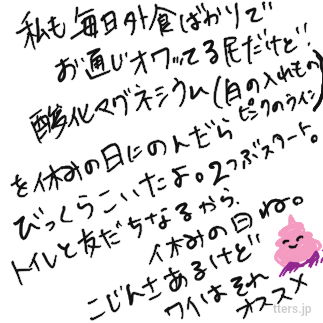 私も毎日外食ばかりで
お通じオワッてる民だけど!
酸化マグネシウム(白の入れもの
ピンクのライン)
を休みの日にのんだら
びっくらこいたよ。2つぶスタート。
トイレと友だちなるから。
休みの日ね。
こじんさあるけど
ワイはそれ
オススメ
tters.jp